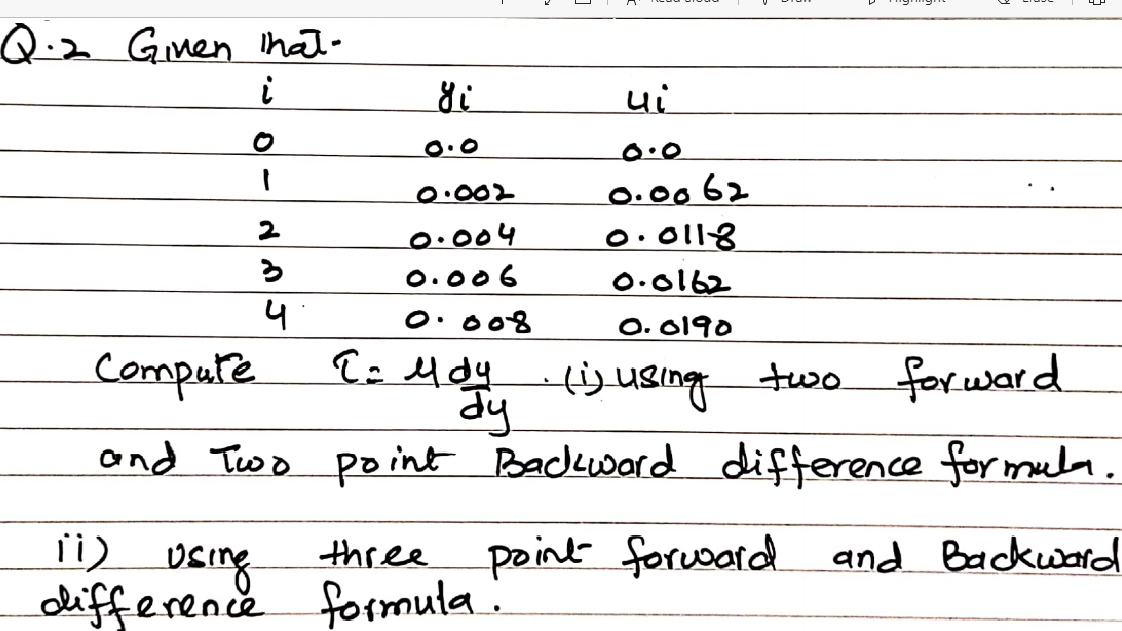 Read aloud Draw Highlight Erase
Q.2 Given that-
i yi ui
0 0.0 0.0
1 0.002 0.0062
2 0.004 0.0118
3 0.006 0.0162
4 0.008 0.0190
Compute τ = μ du/dy . (i) using two forward
and Two point Backward difference formula.
ii) using three point forward and Backward
difference formula.